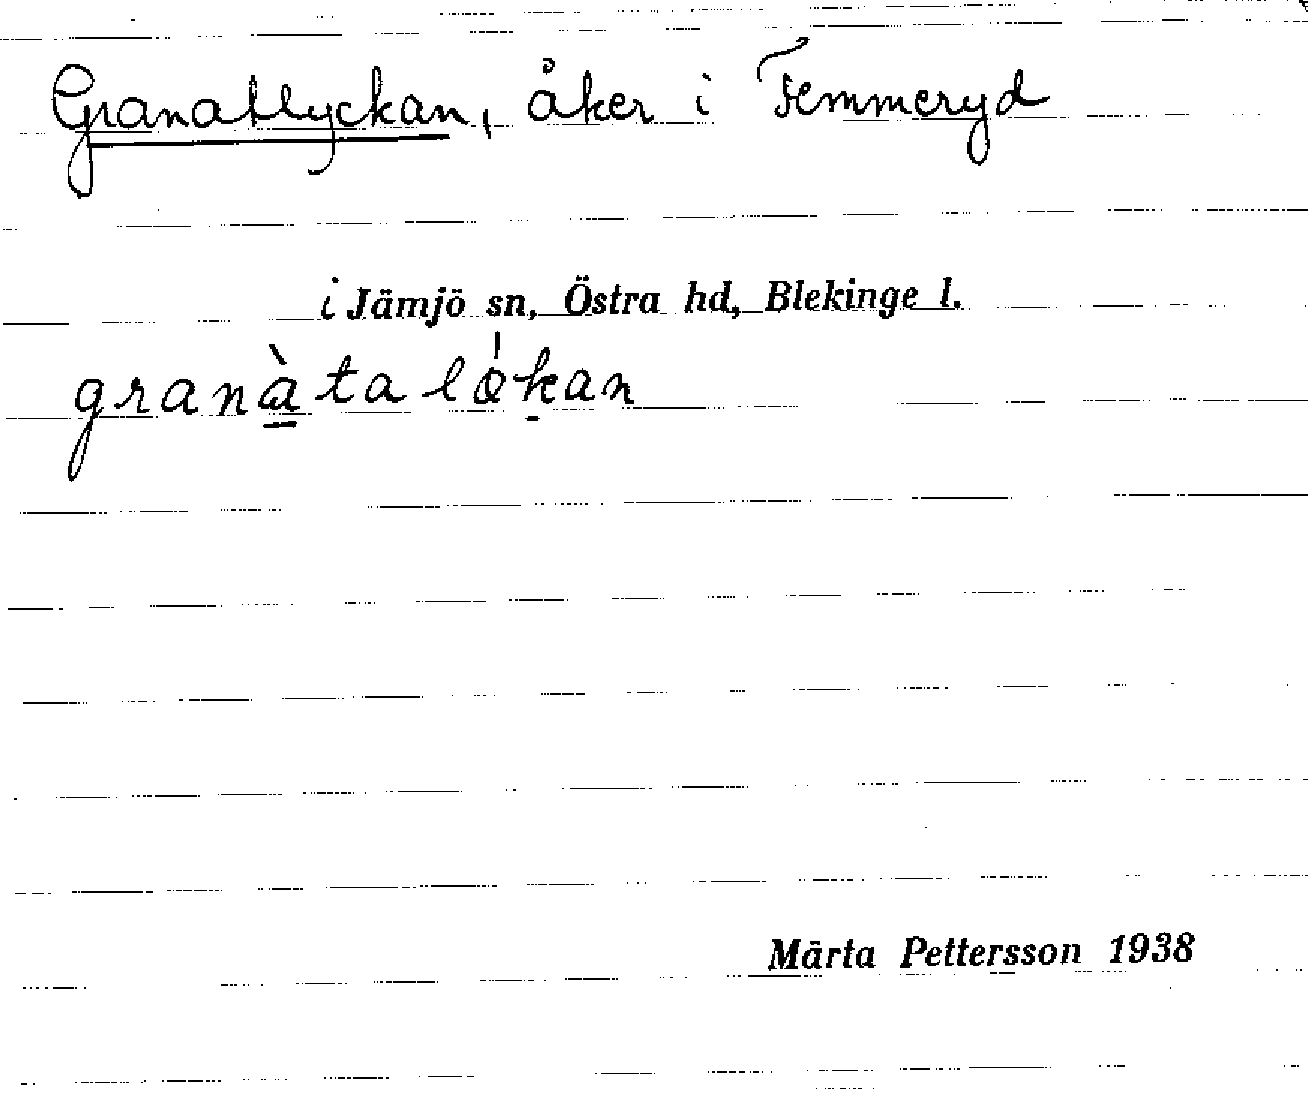 Granatlyckan, åker i Femmeryd
i Jämjö sn, Östra hd, Blekinge l.
granàta lǿkan
Märta Pettersson 1938